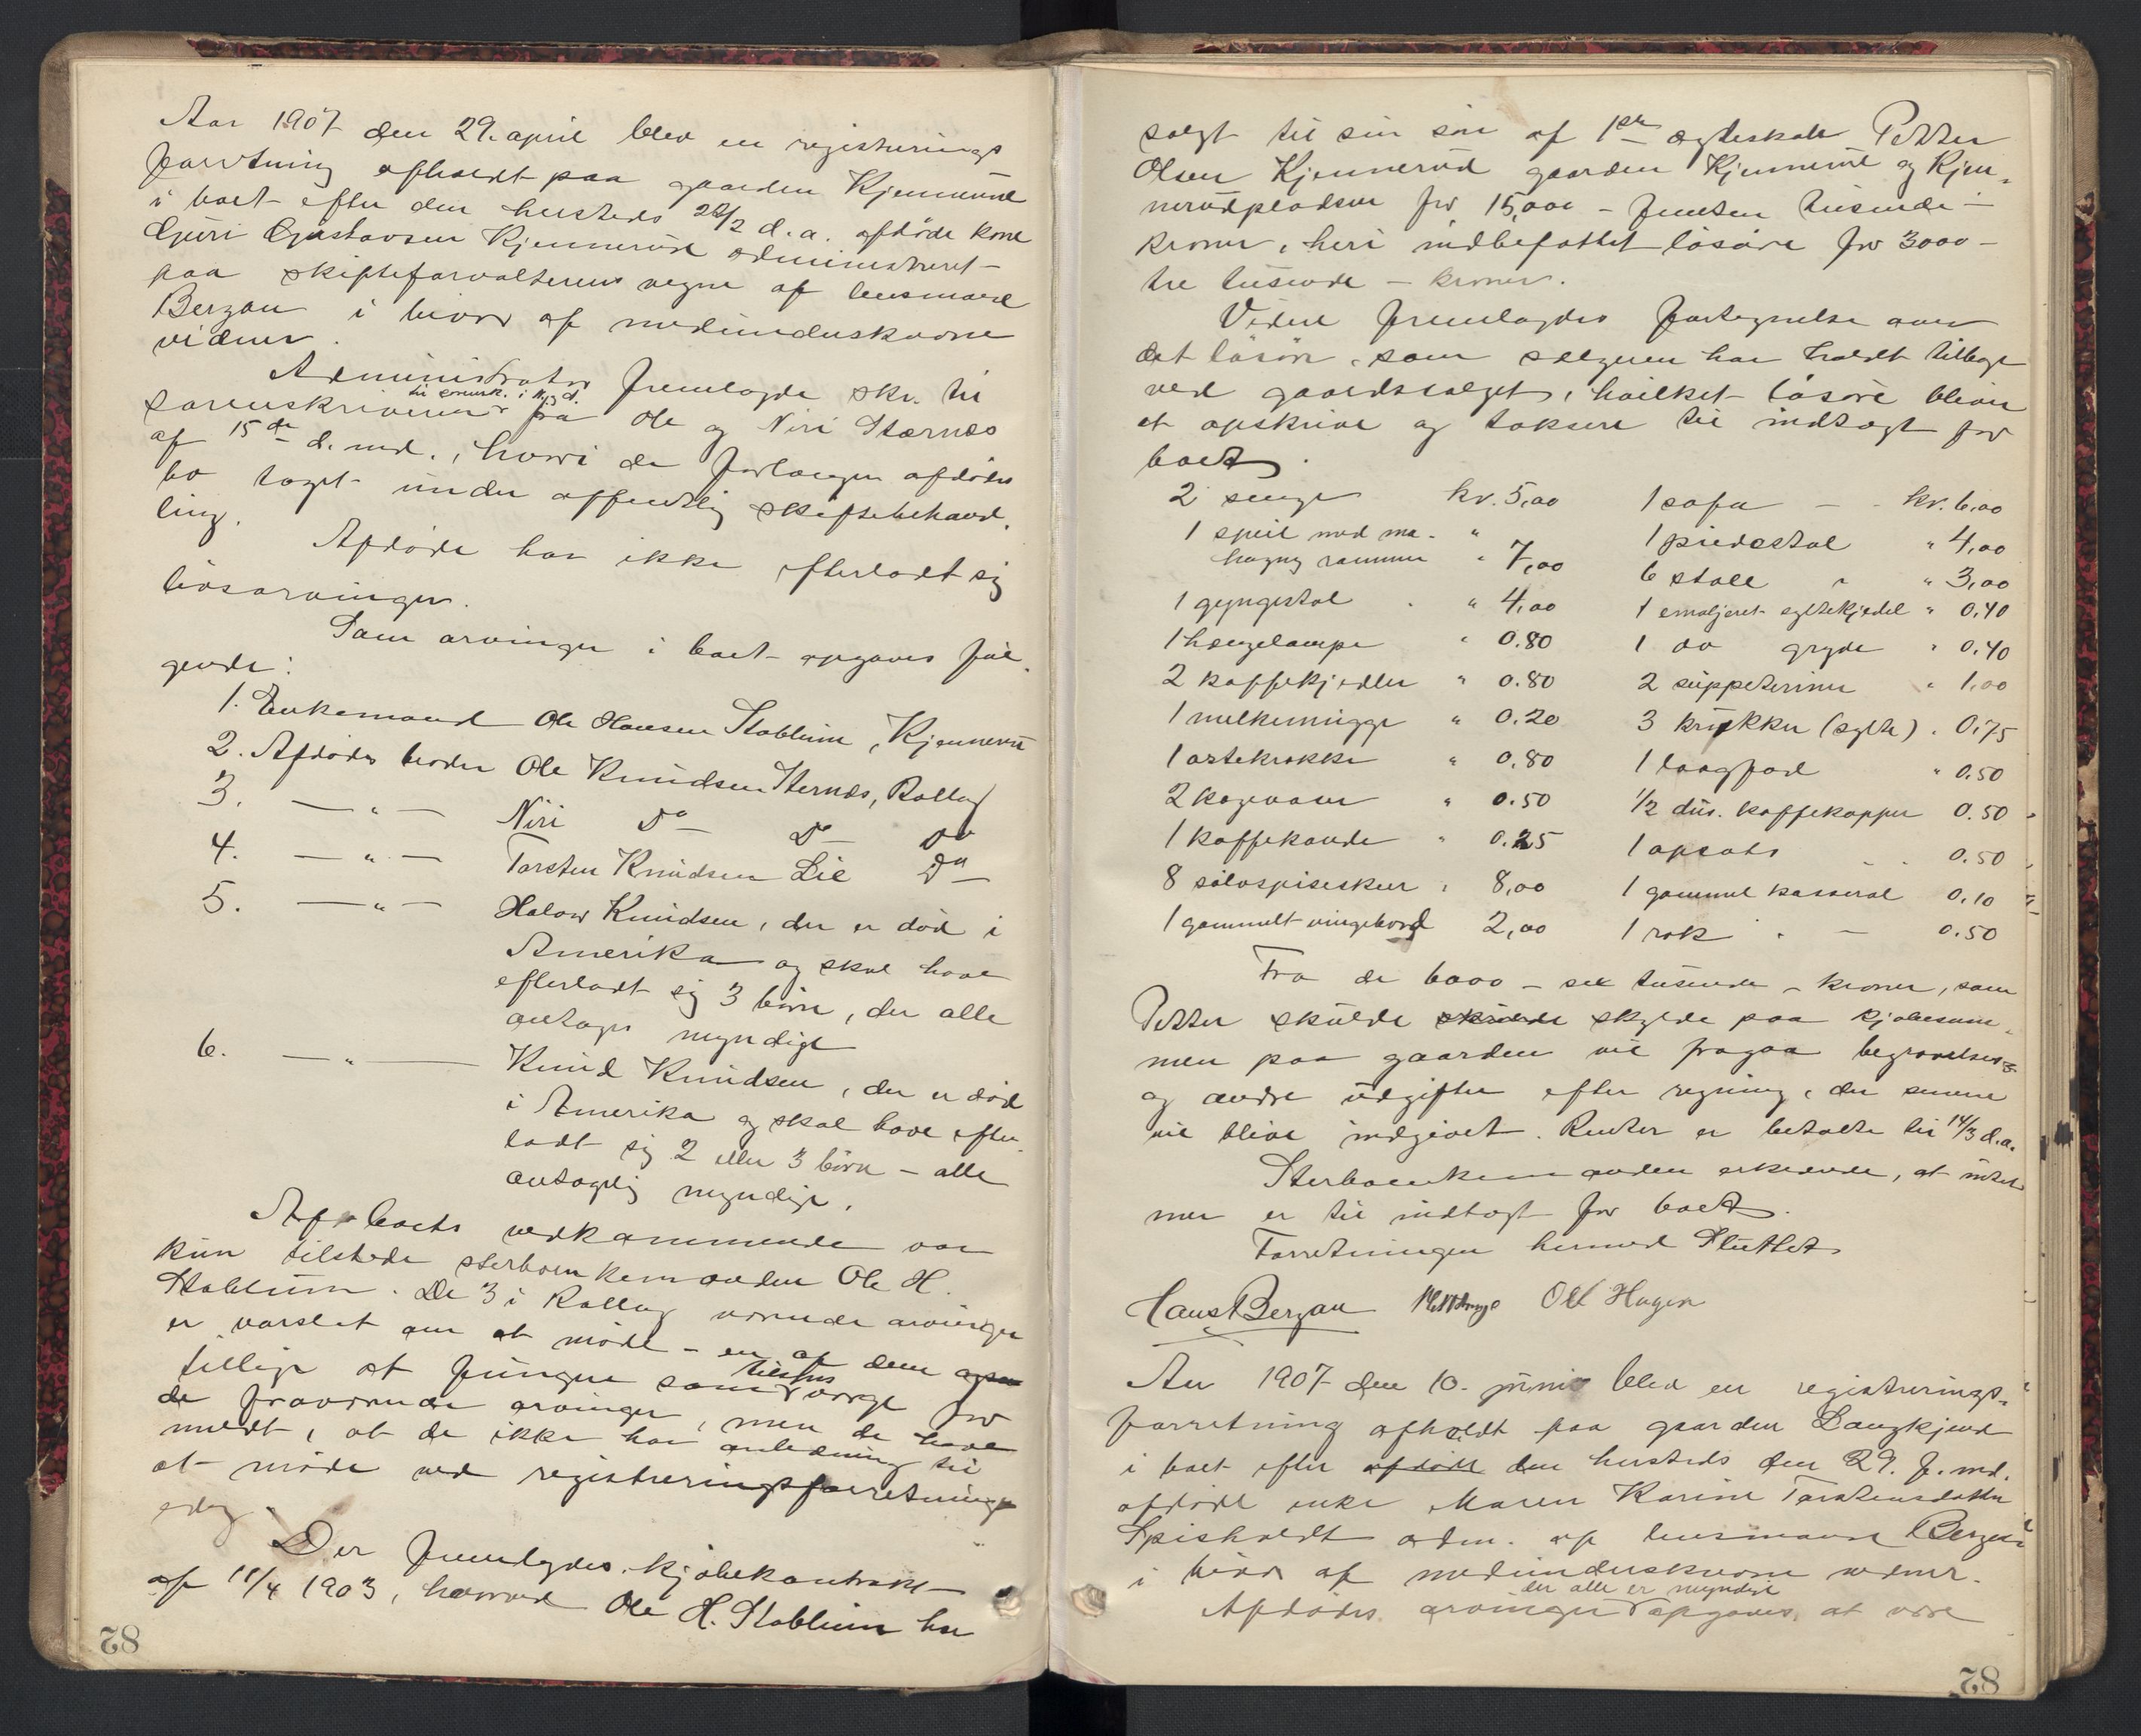 Aar 1907 den 29. april blev en registrerings
forretning afholdt paa gaarden Kjennerud
i boet efter den hersteds 28/2 d.a. afdöde kone
Guri Gustavsen Kjennerud administreret
paa skifteforvalterens vegne af lensmand
Berzau i hivær af medunderskrevne
vidner.
Administrator fremlagde skr. til
sorenskriveren fra Ole og Niri Sternes
af 15de d. md., hvori de forlanger afdödes
bo taget under offentlig skiftebehand-
ling.
Afdöde har ikke efterladt sig
livsarvinger.
Som arvinger i boet opgaves föl-
gende:
1. Enkemand Ole Hansen Stablum, Kjennerud
2. Afdödes broder Ole Knudsen Sternes, Rollag
3. — " — Niri Do — Do — Do
4. — " — Torsten Knudsen Lie Do —
5. — " — Halvor Knudsen, der er död i
Amerika og skal have
efterladt sig 3 börn, der alle
antages myndige
6. — " — Knud Knudsen, der er död
i Amerika og skal have efter-
ladt sig 2 eller 3 börn – alle
antagelig myndige.
Af boets vedkommende var
kun tilstede sterboenkemanden Ole H.
Stablum. De 3 i Rollag værende arvinger
er varslet om at möde – en af dem
tillige at fungere som tilsyns værge for
de fraværende arvinger, men de have
meldt, at de ikke har anledning til
at möde ved registreringsforretningen
idag.
Der fremlagdes kjöbekontrakt
af 11/4 1903, hvorved Ole H. Stablum har
82
solgt til sin sön af 1ste ægteskab Petter
Olsen Kjennerud gaarden Kjennerud og Kjen-
nerudpladsen for 15,000 – femten tusinde –
kroner, heri indbefattet lösöre for 3000 –
tre tusinde – kroner.
Videre fremlagdes fortegnelse over
det lösöre, som sælgeren har holdt tilbage
ved gaardsalget, hvilket lösöre bliver
at opskrive og taksere til indtægt for
boet.
2 senge kr. 5,00 1 sofa – kr. 6,00
1 speil med ma- " 1 piedestal " 4,00
hagny rammer " 7,00 6 stole " " 3,00
1 gyngestol " 4,00 1 emaljeret syltekjedel " 0,40
1 hængelampe " 0.80 1 do gryde " 0,40
2 kaffekjedler " 0.80 2 suppeteriner " 1,00
1 melkemugge " 0.20 3 krukker (sylte) " 0,75
1 ostekrukke " 0,80 1 laagfad " 0.50
2 kagevaser " 0.50 1/2 dus. kaffekopper 0.50
1 kaffekande " 0.25 1 opsats 0.50
8 sölvspiseskeer " 8,00 1 gammel kasserol 0,10
1 gammelt vingebord 2,00 1 rok – 0.50
Fra de 6000 – sex tusinde – kroner, som
Petter skulde skulde skylde paa kjöbesum-
men paa gaarden vil fragaa begravelses
og andre udgifter efter regning, der senere
vil blive indgivet. Renter er betalte til 14/3 d.a.
Sterboenkemanden erkjende, at intet
mer er til indtægt for boet.
Forretningen hermed Sluttet
Hans Berzau Ole Hagen
Aar 1907 den 10. juni blev en registrerings-
forretning afholdt paa gaarden Langkjend
i boet efter afdöde den hersteds den 29. f. md.
afdöde enke Maren Karine Torstensdatter
Spisholdt adm. af lensmand Berzau
i hivær af medunderskrevne vidner.
Afdödes arvinger der alle er myndige opgaves at være
82